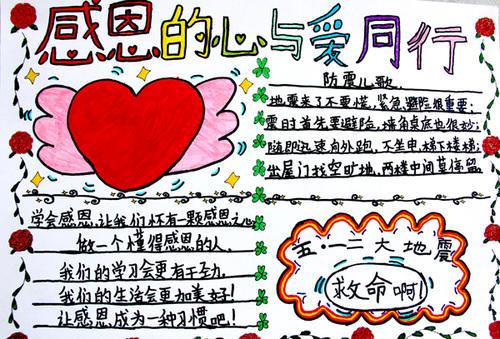 感恩的心与爱同行
防震儿歌
地震来了不要慌,紧急避险很重要;
震时首先要避险,墙角桌底也很妙;
随即迅速向外跑,不坐电梯下楼梯;
出屋门找空旷地,两楼中间莫停留.
学会感恩,让我们怀有一颗感恩之心,
做一个懂得感恩的人.
我们的学习会更有干劲,
我们的生活会更加美好!
让感恩成为一种习惯吧!
五·一二大地震
救命啊!